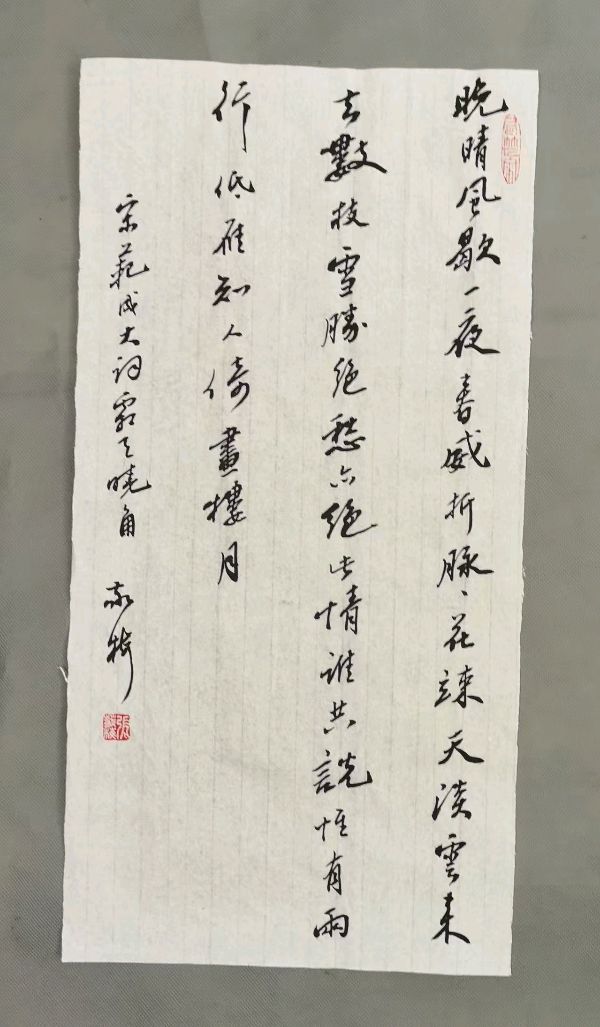 晚晴風歇一夜春威折脉〻花疎天淡雲来
去數枝雪勝絶愁亦絶此情誰共説惟有兩
行低雁知人倚畫樓月
宋范成大词霜天曉角